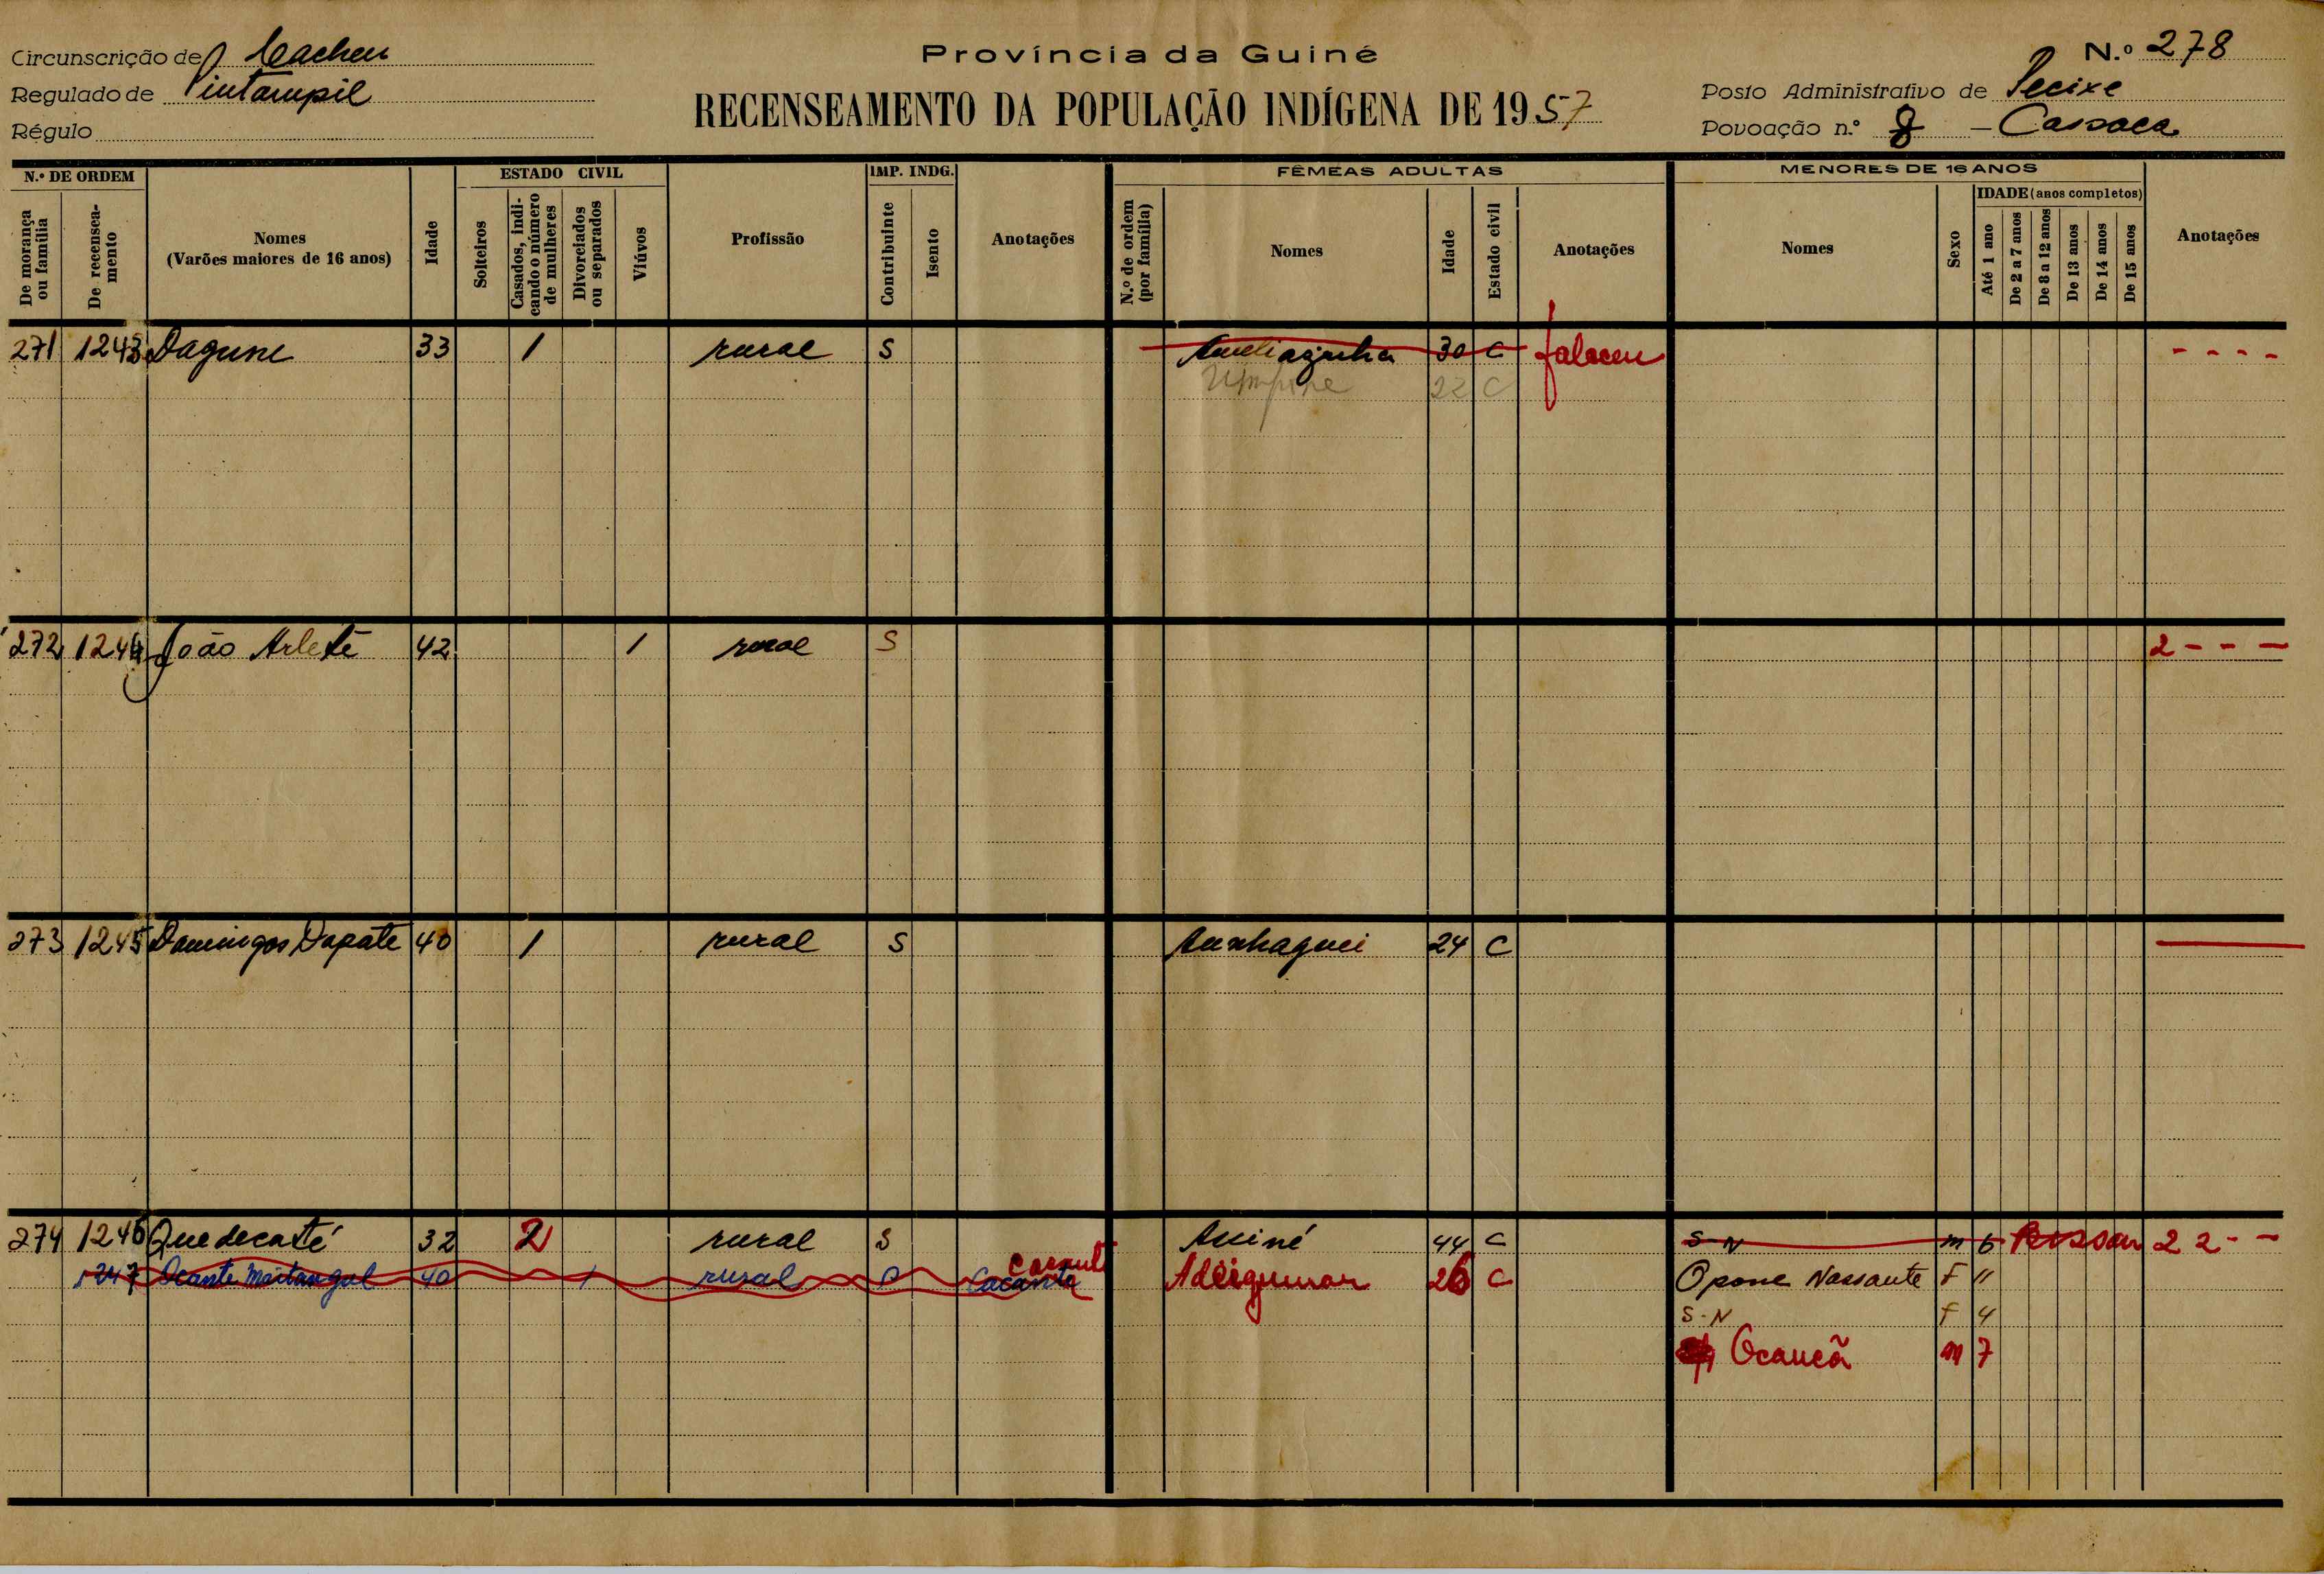 Circunscrição de Cacheu
Província da Guiné
N.º 278
Regulado de Pintampil
RECENSEAMENTO DA POPULAÇÃO INDÍGENA DE 1957
Posto Administrativo de Pecixe
Régulo
Povoação n.º 8 - Cassaca
N.º DE ORDEM
ESTADO CIVIL
IMP. INDG.
FÊMEAS ADULTAS
MENORES DE 16 ANOS
De morança ou família
De recenseamento
Nomes (Varões maiores de 16 anos)
Idade
Solteiros
Casados, indicando o número de mulheres
Divorciados ou separados
Viúvos
Profissão
Contribuinte
Isento
Anotações
N.º de ordem (por família)
Nomes
Idade
Estado civil
Anotações
Nomes
Sexo
IDADE (anos completos)
Até 1 ano
De 2 a 7 anos
De 8 a 12 anos
De 13 anos
De 14 anos
De 15 anos
Anotações
271 1243 Dagune 33 1 rural S Ameliazinha 30 C faleceu - - - -
22 C
272 1244 João Arlete 42 1 rural S 2 - - -
273 1245 Domingos Dapate 40 1 rural S 24 C
274 1246 Quedecaté 32 2 rural S Auiné 44 C S-N m 6 Bissau 2 2 - -
1247 Ocante 40 1 rural Cacante 26 C Opone Nassante F 11
S-N F 4
m 7